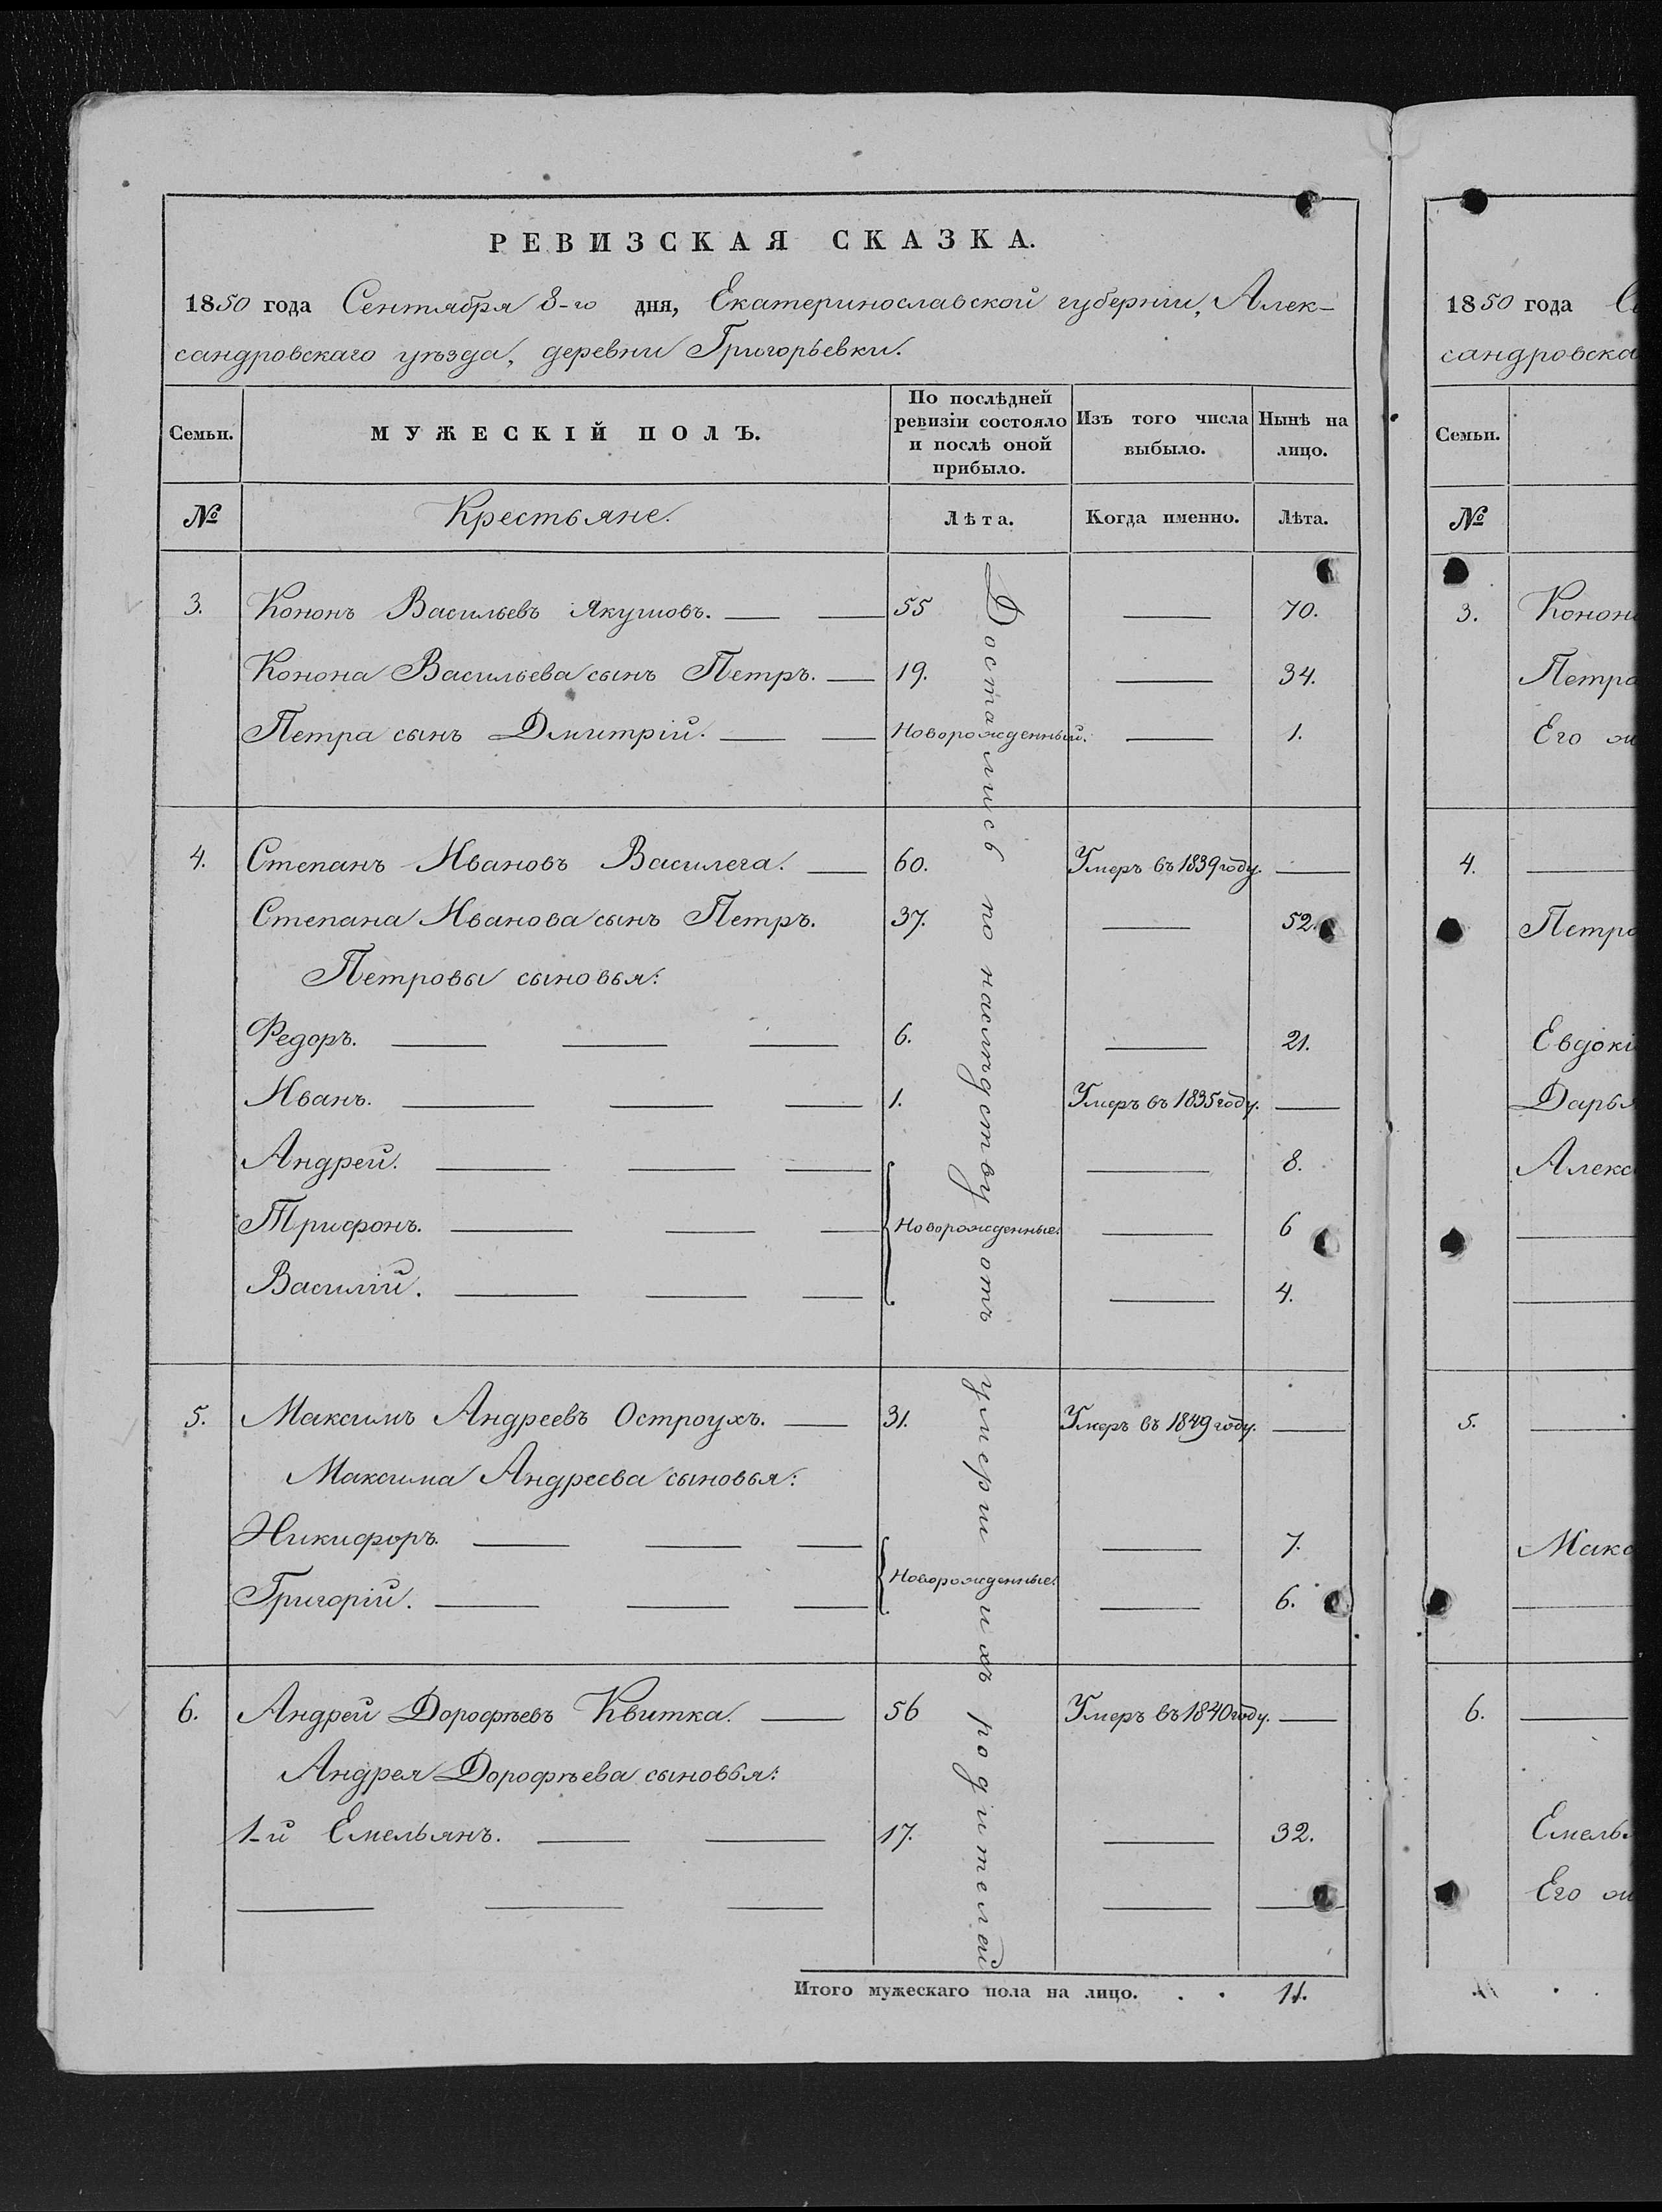 РЕВИЗСКАЯ СКАЗКА.
1850 года Сентября 8-го дня, Екатеринославской губерніи, Алек-
сандровскаго уѣзда, деревни Григорьевки.
Семьи.
МУЖЕСКІЙ ПОЛЪ.
По послѣдней ревизіи состояло и послѣ оной прибыло.
Изъ того числа выбыло.
Нынѣ на лицо.
№ Крестьяне. Лѣта. Когда именно. Лѣта.
Достались по наслѣдству отъ умерш ихъ родителей
3. Кононъ Васильевъ Якушовъ. — — 55 — 70.
Конона Васильева сынъ Петръ. — 19. — 34.
Петра сынъ Дмитрій. — — Новорожденный. — 1.
4. Степанъ Ивановъ Василега. — 60. Умеръ въ 1839 году. —
Степана Иванова сынъ Петръ. 37. — 52.
Петровы сыновья:
Федоръ. — — — 6. — 21.
Иванъ. — — — 1. Умеръ въ 1835 году. —
Андрей. — — — — 8.
Трифонъ. — — — Новорожденные. — 6
Василій. — — — — 4.
5. Максимъ Андреевъ Остроухъ. — 31. Умеръ въ 1849 году. —
Максима Андреева сыновья:
Никифоръ. — — — — 7.
Новорожденные.
Григорій. — — — — 6.
6. Андрей Дорофѣевъ Квитка. — 56 Умеръ въ 1840 году. —
Андрея Дорофѣева сыновья:
1-й Емельянъ. — — 17. — 32.
— — — — —
Итого мужескаго пола на лицо. . . 11.
1850 года
сандровска
Семьи.
№
3. Конон
Петра
Его
4. —
Петра
Евдокі
Дарья
Алекс
—
—
5. —
Макс
—
6. —
Емель
Его